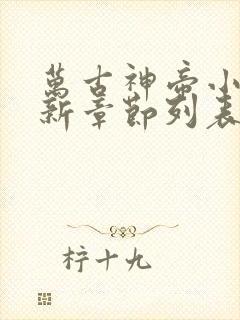 萬古神帝小
新章節列表
柠十九